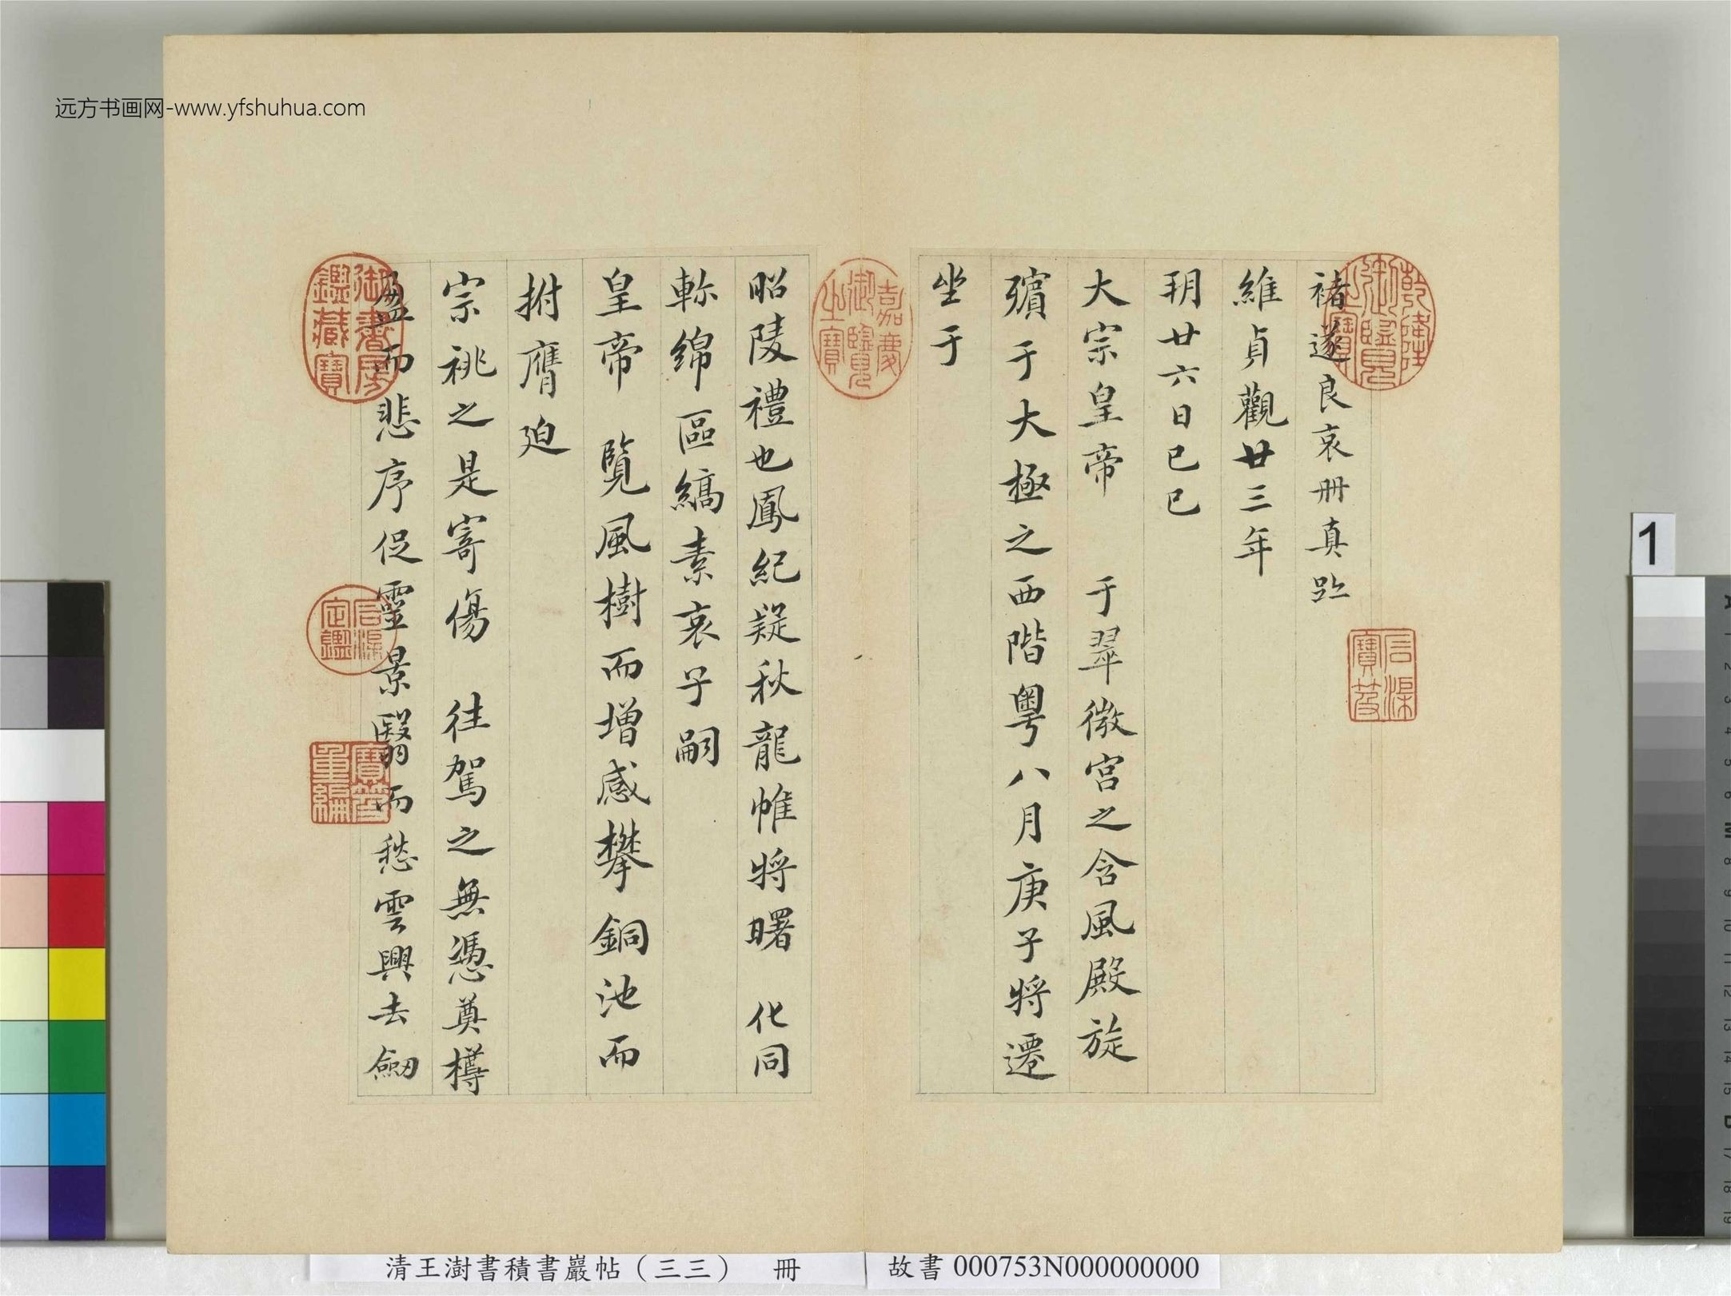 远方书画网-www.yfshuhua.com
褚遂良哀冊真跡
維貞觀廿三年
玥廿六日已已
大宗皇帝 于翠微宮之含風殿旋
殯于大極之西階粵八月庚子將遷
坐于
昭陵禮也鳳紀疑秋龍帷將曙 化同
軫綿區縞素哀子嗣
皇帝 覽風樹而增感攀銅池而
拊膺迫
宗祧之是寄傷 往駕之無憑奠樽
盈而悲序促靈景翳而愁雲興去劒
乾隆御覽之寶
石渠寶笈
嘉慶御覽之寶
御書房鑑藏寶
石渠定鑑
寶笈重編
清王澍書積書巖帖（三三） 冊
故書 000753N000000000
1